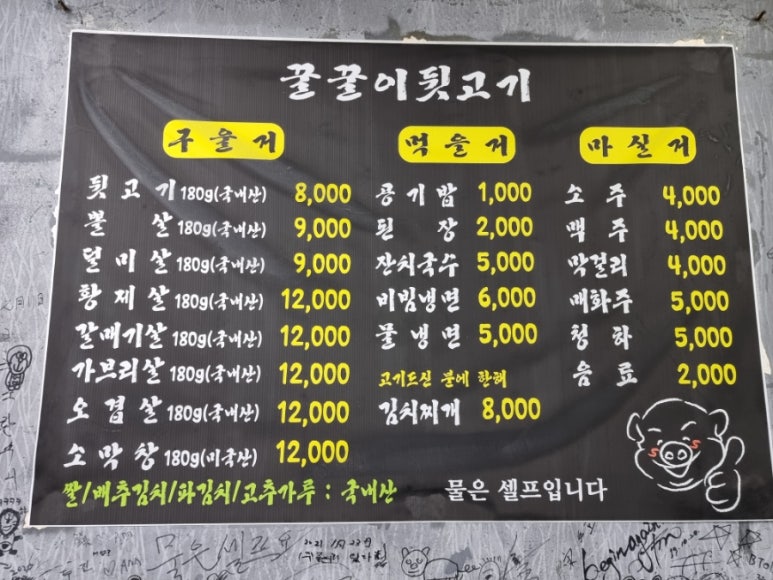 꿀꿀이뒷고기
구울거
뒷고기 180g(국내산) 8,000
볼살 180g(국내산) 9,000
덜미살 180g(국내산) 9,000
황제살 180g(국내산) 12,000
갈매기살 180g(국내산) 12,000
가브리살 180g(국내산) 12,000
오겹살 180g(국내산) 12,000
소막창 180g(미국산) 12,000
먹을거
공기밥 1,000
된장 2,000
잔치국수 5,000
비빔냉면 6,000
물냉면 5,000
고기드신 분에 한해
김치찌개 8,000
마실거
소주 4,000
맥주 4,000
막걸리 4,000
매화주 5,000
청하 5,000
음료 2,000
쌀/배추김치/파김치/고추가루 : 국내산
물은 셀프입니다
물은셀프요
begin again